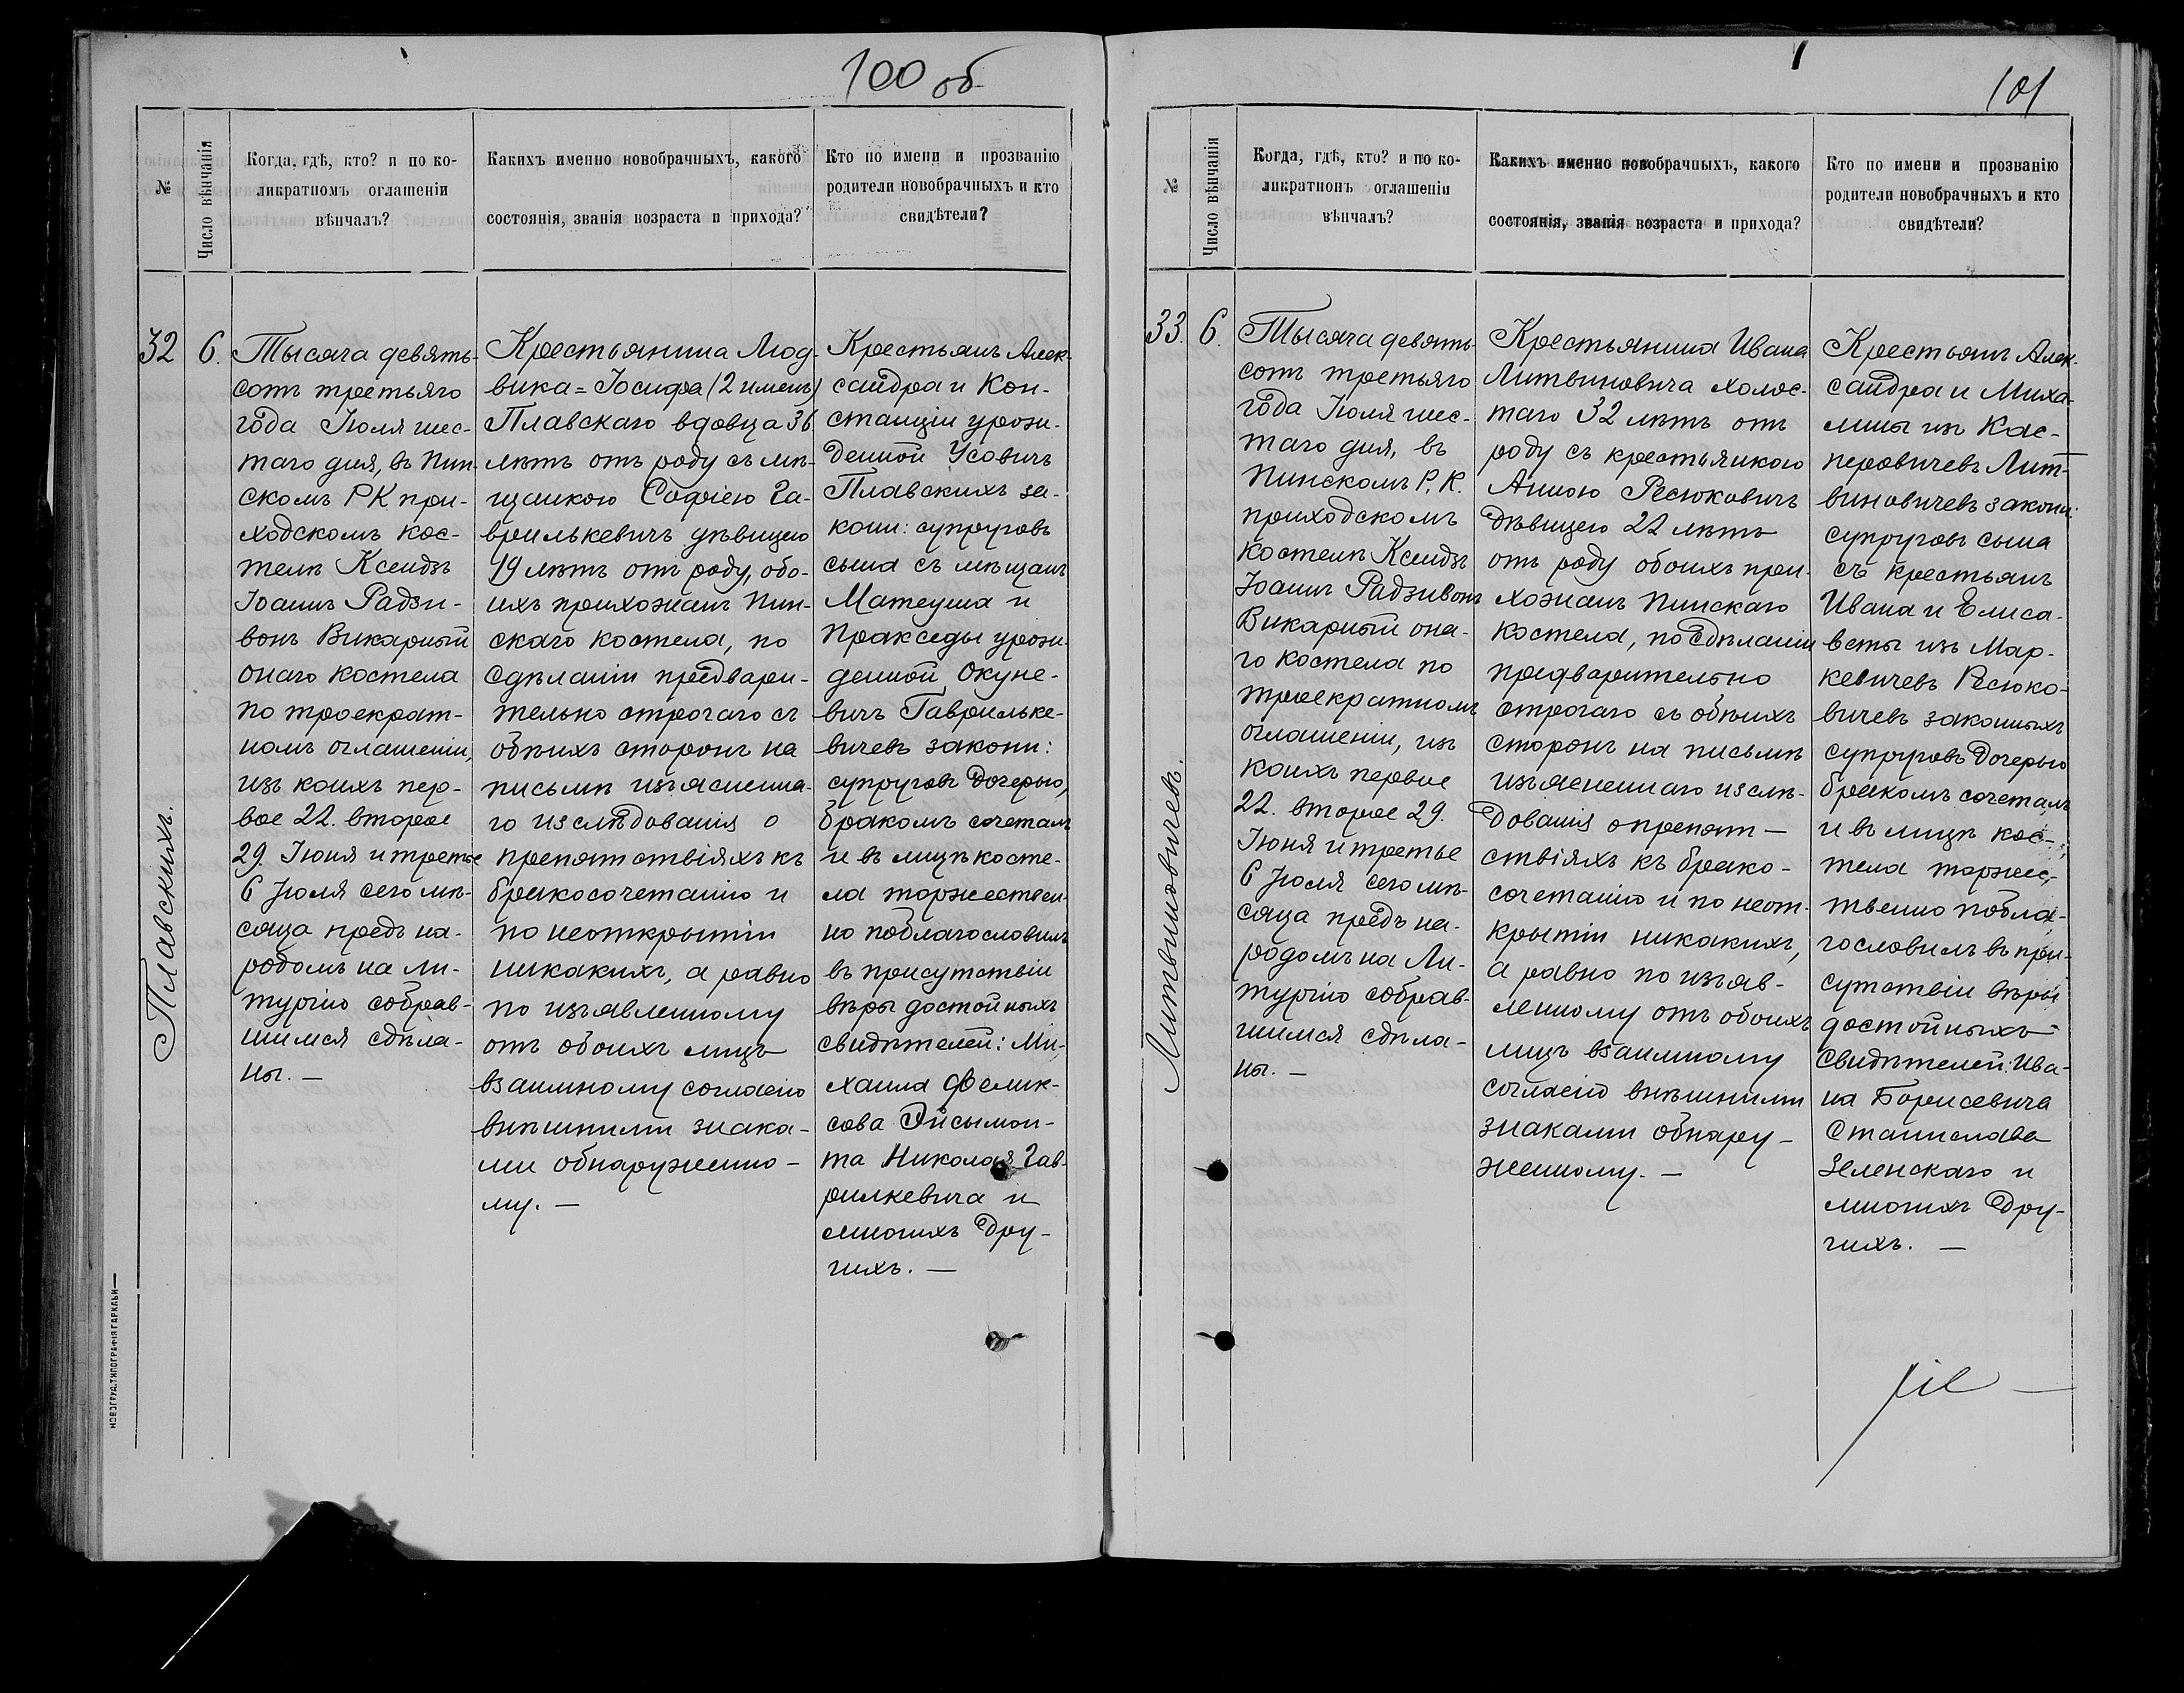 100 об
№
Число вѣнчанія
Когда, гдѣ, кто? и по ко-
ликратномъ оглашеніи
вѣнчалъ?
Какихъ именно новобрачныхъ, какого
состоянія, званія возраста и прихода?
Кто по имени и прозванію
родители новобрачныхъ и кто
свидѣтели?
32
6.
Плавскихъ.
Тысяча девять-
сотъ третьяго
года Іюля шес-
таго дня, въ Пин-
скомъ РК при-
ходскомъ кос-
телѣ Ксендзъ
Іоаннъ Радзи-
вонъ Викарный
онаго костела
по троекрат-
номъ оглашеніи,
изъ коихъ пер-
вое 22. второе
29. Іюня и третье
6 Іюля сего мѣ-
сяца предъ на-
родомъ на ли-
тургію собрав-
шимся сдѣла-
ны. —
Крестьянина Люд-
вика=Іосифа (2 именъ)
Плавскаго вдовца 36
лѣтъ отъ роду съ мѣ-
щанкою Софіею Га-
врилькевичъ дѣвицею
19 лѣтъ отъ роду, обо-
ихъ прихожанъ Пин-
скаго костела, по
сдѣланіи предвари-
тельно строгаго съ
обѣихъ сторонъ на
письмѣ изъясненна-
го изслѣдованія о
препятствіяхъ къ
бракосочетанію и
по неоткрытіи
никакихъ, а равно
по изъявленному
отъ обоихъ лицъ
взаимному согласію
внѣшними знака-
ми обнаруженно-
му. —
Крестьянъ Алек-
сандра и Кон-
станціи урож-
денной Усовичъ
Плавскихъ за-
конн: супруговъ
сына съ мѣщанъ
Матеуша и
Пракседы урож-
денной Окуне-
вичъ Гаврильке-
вичевъ законн:
супруговъ дочерью,
бракомъ сочеталъ
и въ лицѣ косте-
ла торжествен-
но поблагословилъ
въ присутствіи
вѣры достойныхъ
свидѣтелей: Ми-
хаила Феликс-
сова Эйсымон-
та Николая Гав-
рилкевича и
многихъ дру-
гихъ. —
НОВОГРУД. ТИПОГРАФІЯ ГАРКАВИ
101
№
Число вѣнчанія
Когда, гдѣ, кто? и по ко-
ликратномъ оглашеніи
вѣнчалъ?
Какихъ именно новобрачныхъ, какого
состоянія, званія возраста и прихода?
Кто по имени и прозванію
родители новобрачныхъ и кто
свидѣтели?
33.
6.
Литвиновичевъ.
Тысяча девять-
сотъ третьяго
года Іюля шес-
таго дня, въ
Пинскомъ Р. К.
приходскомъ
костелѣ Ксендзъ
Іоаннъ Радзивонъ
Викарный она-
го костела по
троекратномъ
оглашеніи, изъ
коихъ первое
22. второе 29.
Іюня и третье
6 Іюля сего мѣ-
сяца предъ на-
родомъ на Ли-
тургію собрав-
шимся сдѣла-
ны. —
Крестьянина Ивана
Литвиновича холос-
таго 32 лѣтъ отъ
роду съ крестьянкою
Анною Ресюковичъ
дѣвицею 22 лѣтъ
отъ роду обоихъ при-
хожанъ Пинскаго
костела, по сдѣланіи
предварительно
строгаго съ обѣихъ
сторонъ на письмѣ
изъясненнаго изслѣ-
дованія о препят-
ствіяхъ къ брако-
сочетанію и по неот-
крытіи никакихъ,
а равно по изъяв-
ленному отъ обоихъ
лицъ взаимному
согласію внѣшними
знаками обнару-
женному. —
Крестьянъ Алек-
сандра и Миха-
лины изъ Кас-
перовичевъ Лит-
виновичевъ законн:
супруговъ сына
съ крестьянъ
Ивана и Елиса-
веты изъ Мар-
кевичевъ Ресюко-
вичевъ законныхъ
супруговъ дочерью
бракомъ сочеталъ
и въ лицѣ кос-
тела торжес-
твенно побла-
гословилъ въ при-
сутствіи вѣры
достойныхъ
свидѣтелей: Ива-
на Борисевича
Станислава
Зеленскаго и
многихъ дру-
гихъ. —